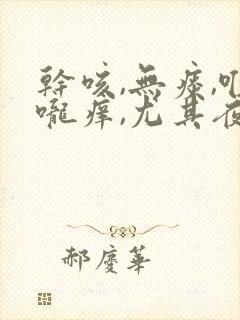 幹咳,無痰,
嚨癢,尤其夜
郝慶華